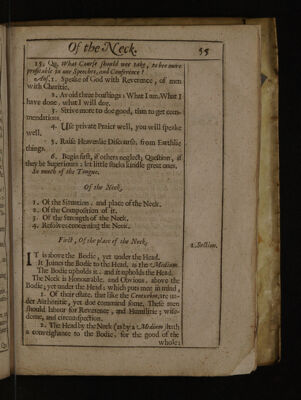 Of the Neck.
55
15. Qu. What Course should wee take, to bee more
profitable in our Speeches, and Conference?
Ans. 1. Speake of God with Reverence, of men
with Charitie.
2. Avoid three boastings: What I am. What I
have done, what I will doe.
3. Strive more to doe good, than to get com-
mendations.
4. Use private Praier well, you will speake
well.
5. Raise Heavenlie Discourse, from Earthlie
things.
6. Begin first, if others neglect, Question, if
they be Superiours: let little sticks kindle great ones.
So much of the Tongue.
Of the Neck,
1. Of the Situation, and place of the Neck.
2. Of the Composition of it.
3. Of the Strength of the Neck.
4. Resolves concerning the Neck.
First, Of the place of the Neck,
2. Section.
IT is above the Bodie, yet under the Head.
It Joines the Bodie to the Head, is the Medium.
The Bodie upholds it, and it upholds the Head.
The Neck is Honourable, and Obvious, above the
Bodie; yet under the Head; which puts mee in mind,
1. Of their estate, that like the Centurion, are un-
der Authoritie, yet doe command some, These men
should labour for Reverence, and Humilitie; wise-
dome, and circumspection.
2. The Head by the Neck (as by a Medium) hath
a conveighance to the Bodie, for the good of the
whole: